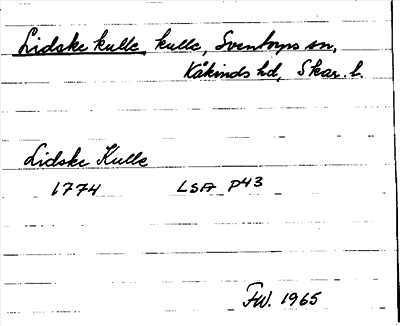 Lidske kulle, kulle, Sventorps sn,
Kåkinds hd, Skar. l.
Lidske Kulle
1774 LSA P43
FW. 1965